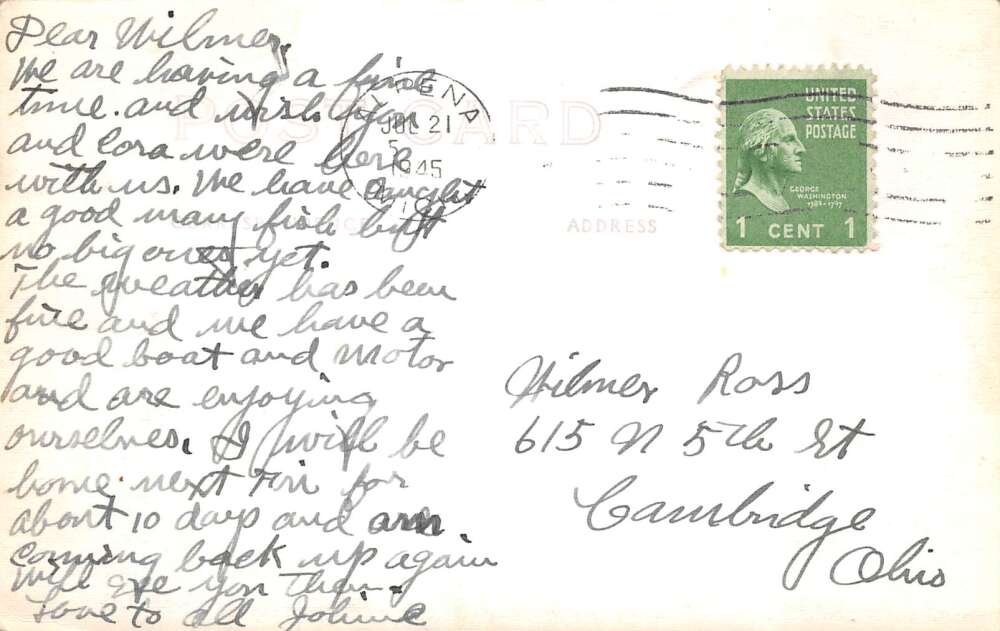 Dear Wilmer.
We are having a fine
time. and wish you
and Cora were here
with us. We have caught
a good many fish but
no big ones yet.
The weather has been
fine and we have a
good boat and motor
and are enjoying
ourselves. I will be
home next Fri for
about 10 days and am
coming back up again
Will see you then.
Love to all Johnie
POST CARD
CORRESPONDENCE
ADDRESS
PENA
JUL 21
5
1945
UNITED
STATES
POSTAGE
GEORGE
WASHINGTON
1789-1797
1 CENT 1
Wilmer Ross
615 N 5th St
Cambridge
Ohio